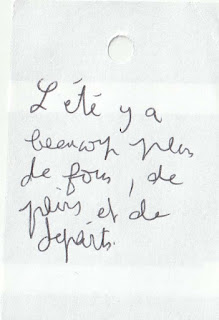 L'été y a
beaucoup plus
de fous, de
et de
départs.